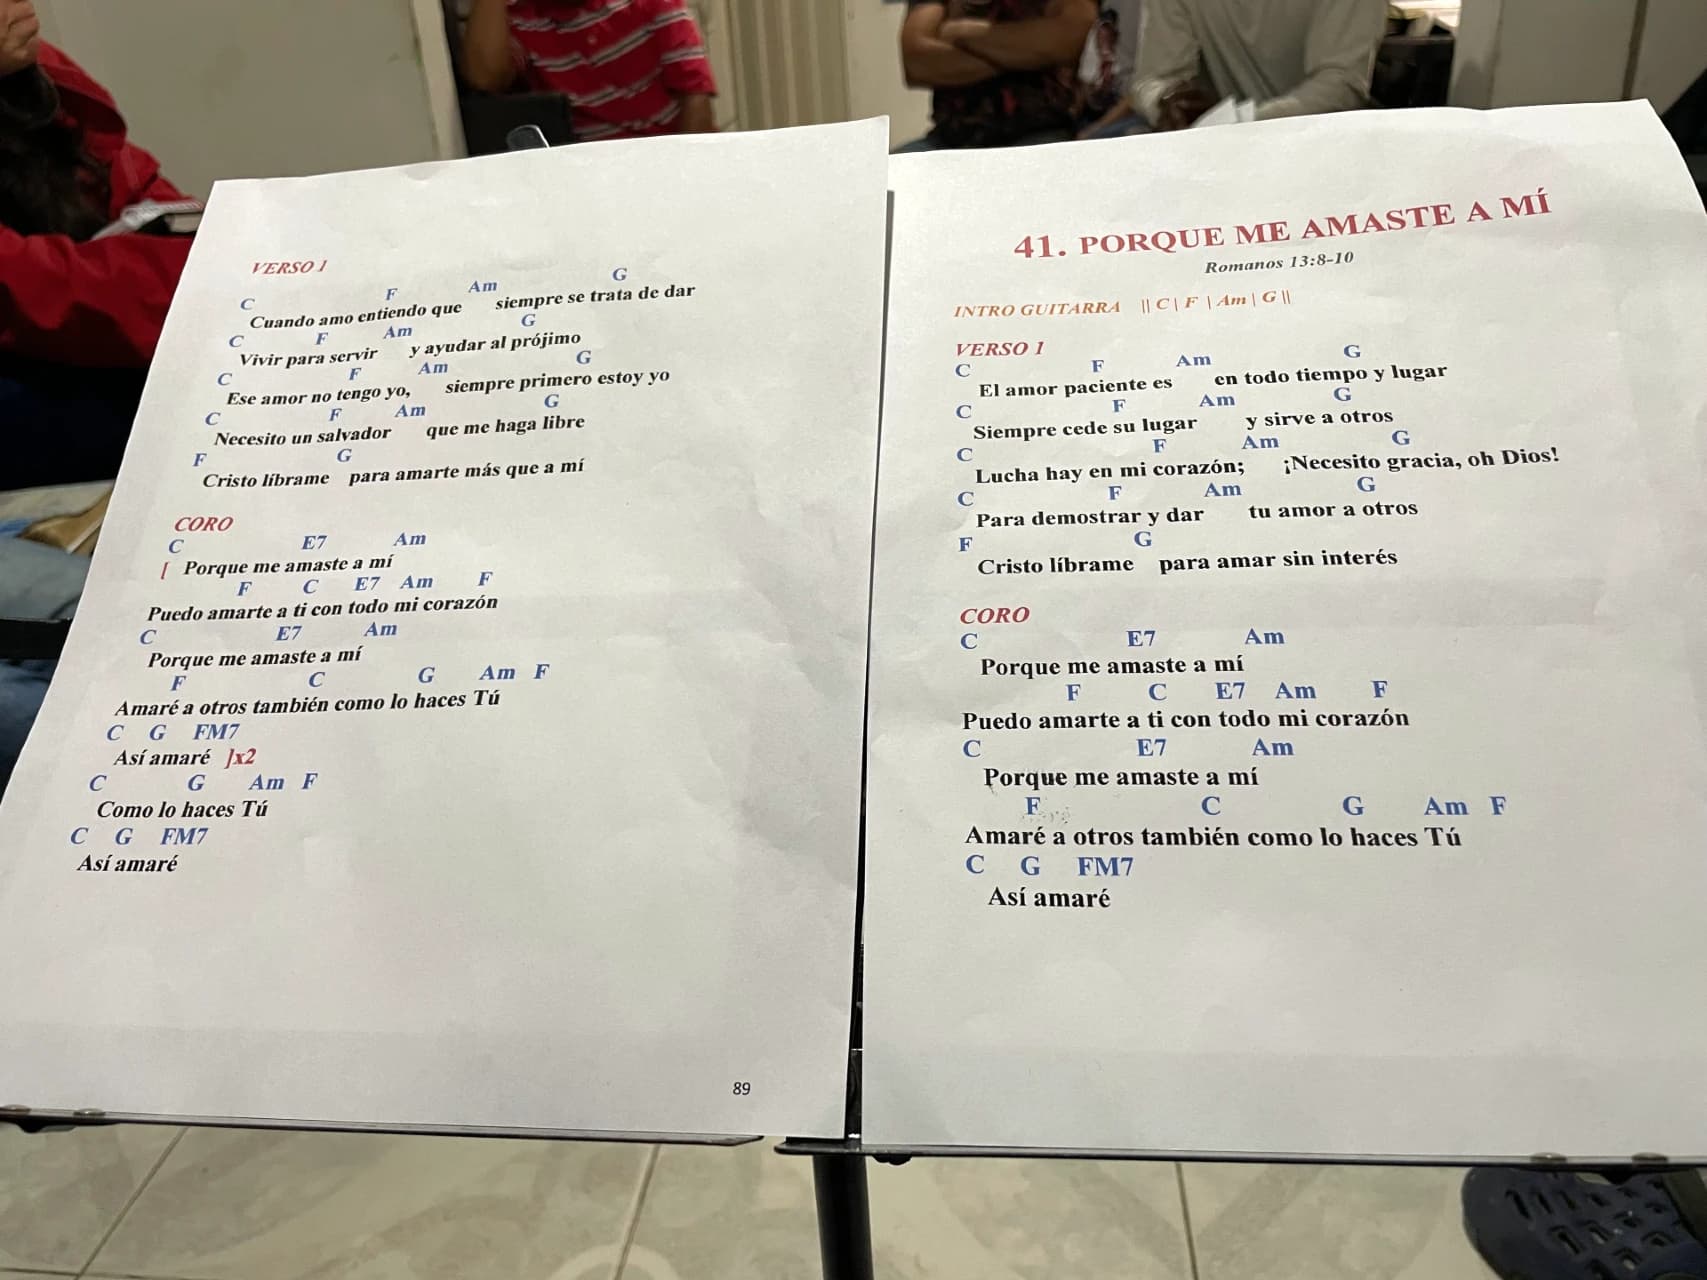 VERSO 1
C F Am G
Cuando amo entiendo que siempre se trata de dar
C F Am G
Vivir para servir y ayudar al prójimo
C F Am G
Ese amor no tengo yo, siempre primero estoy yo
C F Am G
Necesito un salvador que me haga libre
F G
Cristo líbrame para amarte más que a mí
CORO
C E7 Am
[ Porque me amaste a mí
F C E7 Am F
Puedo amarte a ti con todo mi corazón
C E7 Am
Porque me amaste a mí
F C G Am F
Amaré a otros también como lo haces Tú
C G FM7
Así amaré ]x2
C G Am F
Como lo haces Tú
C G FM7
Así amaré
89
41. PORQUE ME AMASTE A MÍ
Romanos 13:8-10
INTRO GUITARRA || C | F | Am | G ||
VERSO 1
C F Am G
El amor paciente es en todo tiempo y lugar
C F Am G
Siempre cede su lugar y sirve a otros
C F Am G
Lucha hay en mi corazón; ¡Necesito gracia, oh Dios!
C F Am G
Para demostrar y dar tu amor a otros
F G
Cristo líbrame para amar sin interés
CORO
C E7 Am
Porque me amaste a mí
F C E7 Am F
Puedo amarte a ti con todo mi corazón
C E7 Am
Porque me amaste a mí
F C G Am F
Amaré a otros también como lo haces Tú
C G FM7
Así amaré